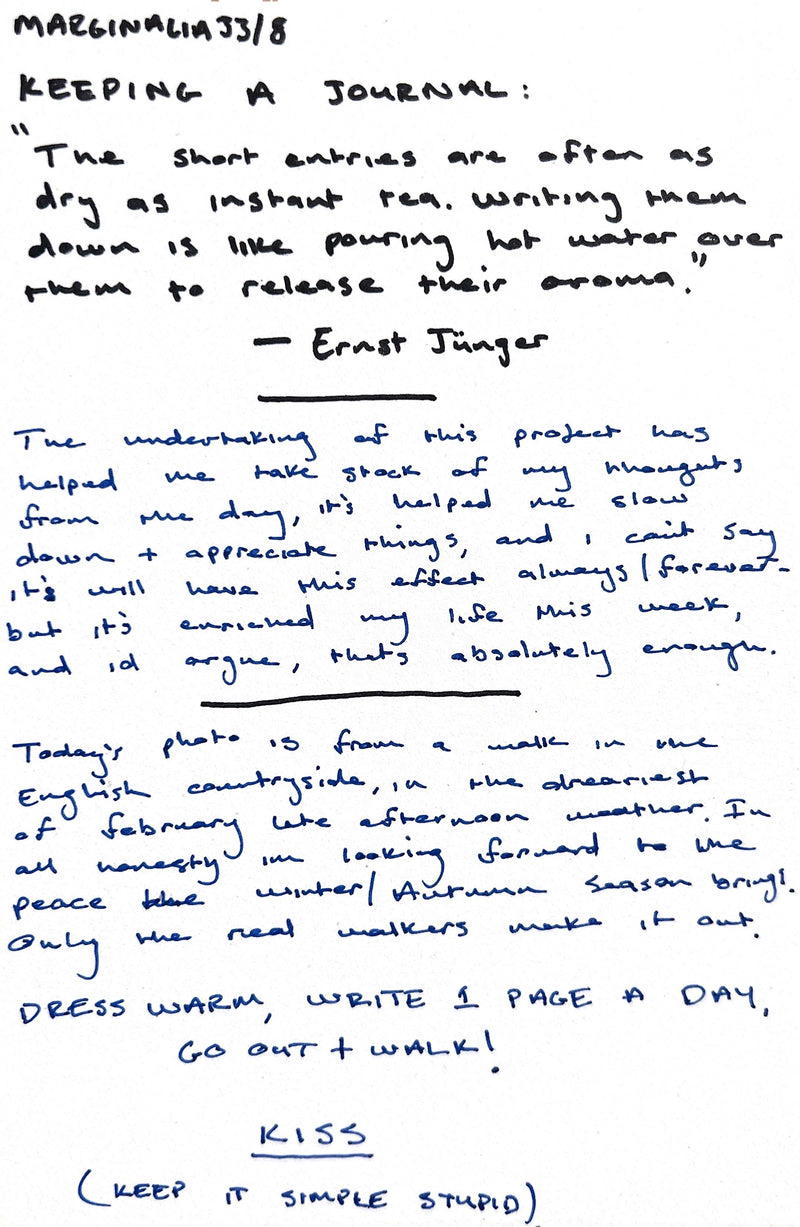 MARGINALIA 33/8
KEEPING A JOURNAL:
"The short entries are often as
dry as instant tea. Writing them
down is like pouring hot water over
them to release their aroma."
— Ernst Jünger
The undertaking of this project has
helped me take stock of my thoughts
from the day, it's helped me slow
down + appreciate things, and i can't say
it's will have this effect always/forever-
but it's enriched my life this week,
and id argue, thats absolutely enough.
Today's photo is from a walk in the
English countryside, in the dreariest
of february late afternoon weather. In
all honesty im looking forward to the
peace the winter/Autumn season brings.
Only the real walkers make it out.
DRESS WARM, WRITE 1 PAGE A DAY,
GO OUT + WALK!
KISS
(KEEP IT SIMPLE STUPID)